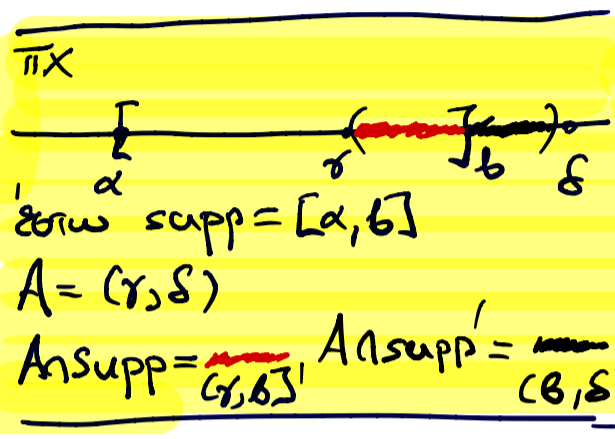 πx
[ ( ] )
α γ β δ
έστω supp = [α, β]
A = (γ, δ)
A∩supp = (γ, β] , A∩supp' = (β, δ